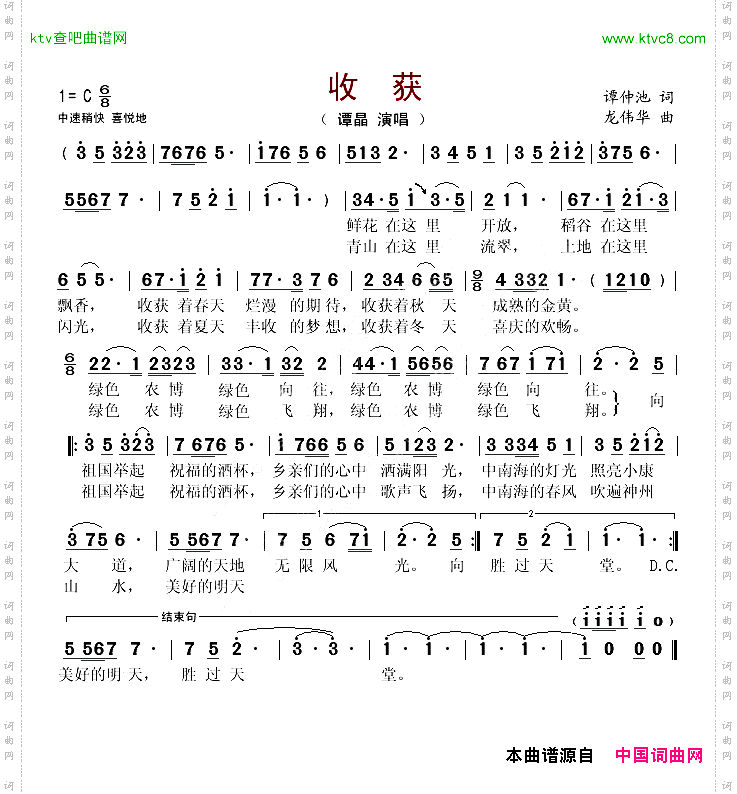 ktv查吧曲谱网
www.ktvc8.com
收 获
1= C 6/8
谭仲池 词
中速稍快 喜悦地
( 谭晶 演唱 )
龙伟华 曲
( 3 5 323 | 7676 5· | 176 5 6 | 513 2· | 3 4 5 1 | 3 5 212 | 375 6· |
5567 7· | 7 5 2 1 | 1· 1· ) | 34·5 1 3·5 | 2 1 1 | 67·1 21·3 |
鲜花 在这 里 开放， 稻谷 在这里
青山 在这 里 流翠， 上地 在这里
6 5 5· | 67·1 2 1 | 77·3 7 6 | 2 34 6 65 | 9/8 4 332 1· ( 1210 ) |
飘香， 收获 着春天 烂漫 的期待，收获着秋 天 成熟的金黄。
闪光， 收获 着夏天 丰收 的梦想，收获着冬 天 喜庆的欢畅。
6/8 22·1 2323 | 33·1 32 2 | 44·1 5656 | 7 67 1 71 | 2· 2 5 |
绿色 农 博 绿色 向 往，绿色 农 博 绿色 向 往。
绿色 农 博 绿色 飞 翔，绿色 农 博 绿色 飞 翔。} 向
‖: 3 5 323 | 7 676 5· | 1 766 5 6 | 5 123 2· | 3 334 5 1 | 3 5 212 |
祖国举起 祝福的酒杯，乡亲们的心中 洒满阳 光，中南海的灯光 照亮小康
祖国举起 祝福的酒杯，乡亲们的心中 歌声飞 扬，中南海的春风 吹遍神州
1 2
3 75 6· | 5 567 7· | 7 5 6 71 | 2· 2 5 :‖ 7 5 2 1 | 1· 1· ‖
大 道， 广阔的天地 无 限 风 光。 向 胜 过 天 堂。 D.C.
山 水， 美好的明天
结束句
( 1 1 1 1 o )
5 567 7· | 7 5 2· | 3· 3· | 1· 1· | 1· 1· | 1 0 0 0 ‖
美好的明 天， 胜 过 天 堂。
本曲谱源自 中国词曲网